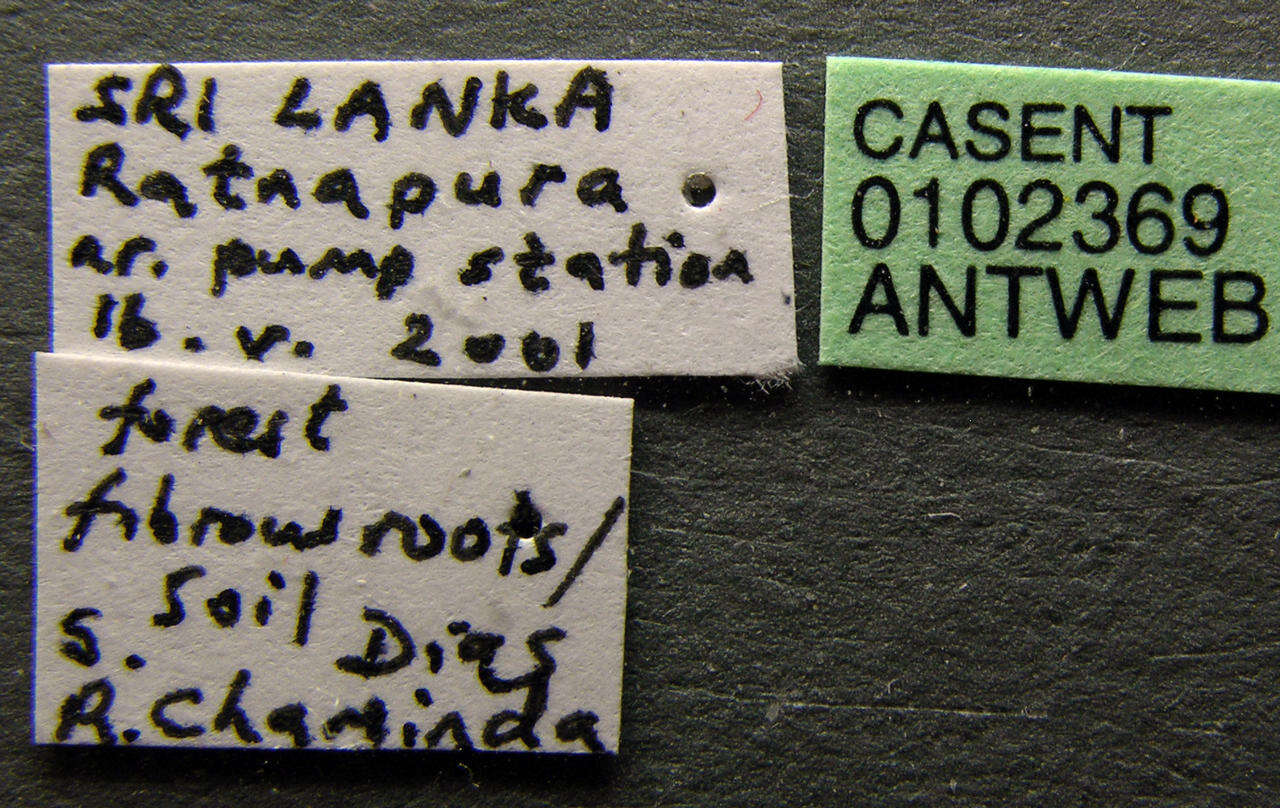 SRI LANKA
Ratnapura
nr. pump station
16. v. 2001
forest
fibrous roots/
soil
S. Dias
R. Chaminda
CASENT
0102369
ANTWEB